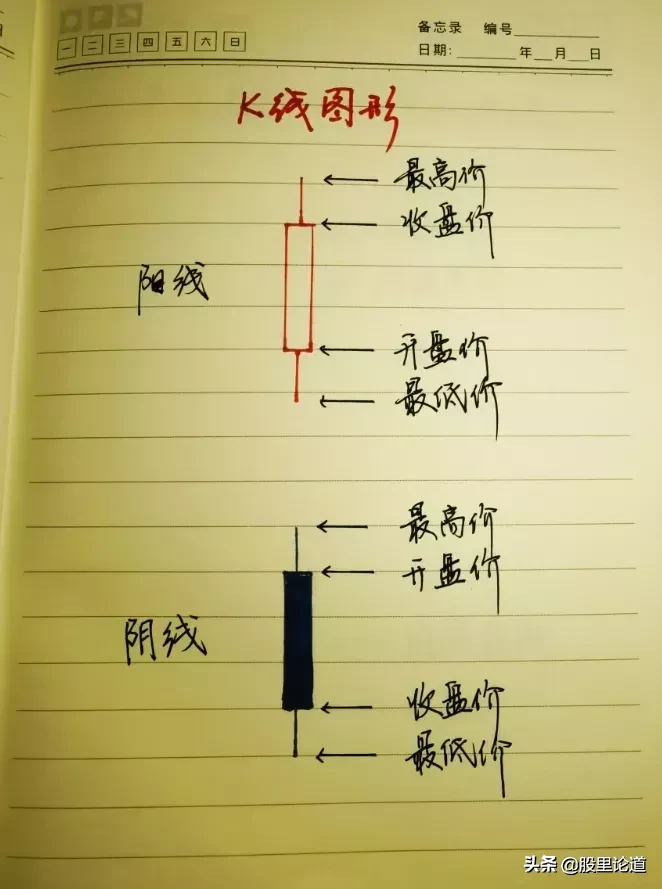 备忘录 编号
一 二 三 四 五 六 日
日期: 年 月 日
K线图形
最高价
收盘价
阳线
开盘价
最低价
最高价
开盘价
阴线
收盘价
最低价
头条 @股里论道